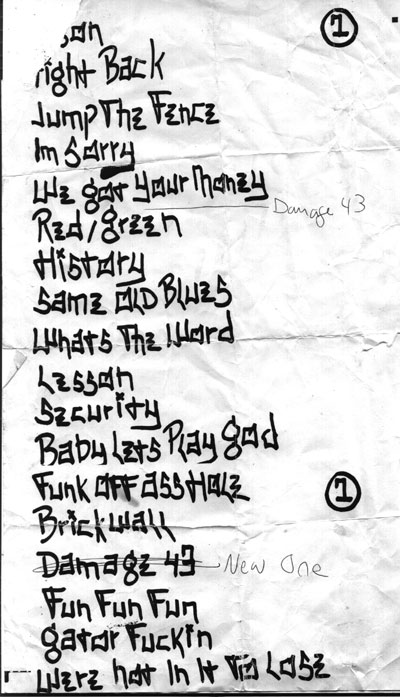 1
right Back
Jump The Fence
Im Sorry
We got your Money
Damage 43
Red/green
History
Same old Blues
Whats The Word
Lesson
Security
Baby Lets Play god
Funk off assHole
1
Brickwall
Damage 43 New One
Fun Fun Fun
gator Fuckin
were not In It To Lose